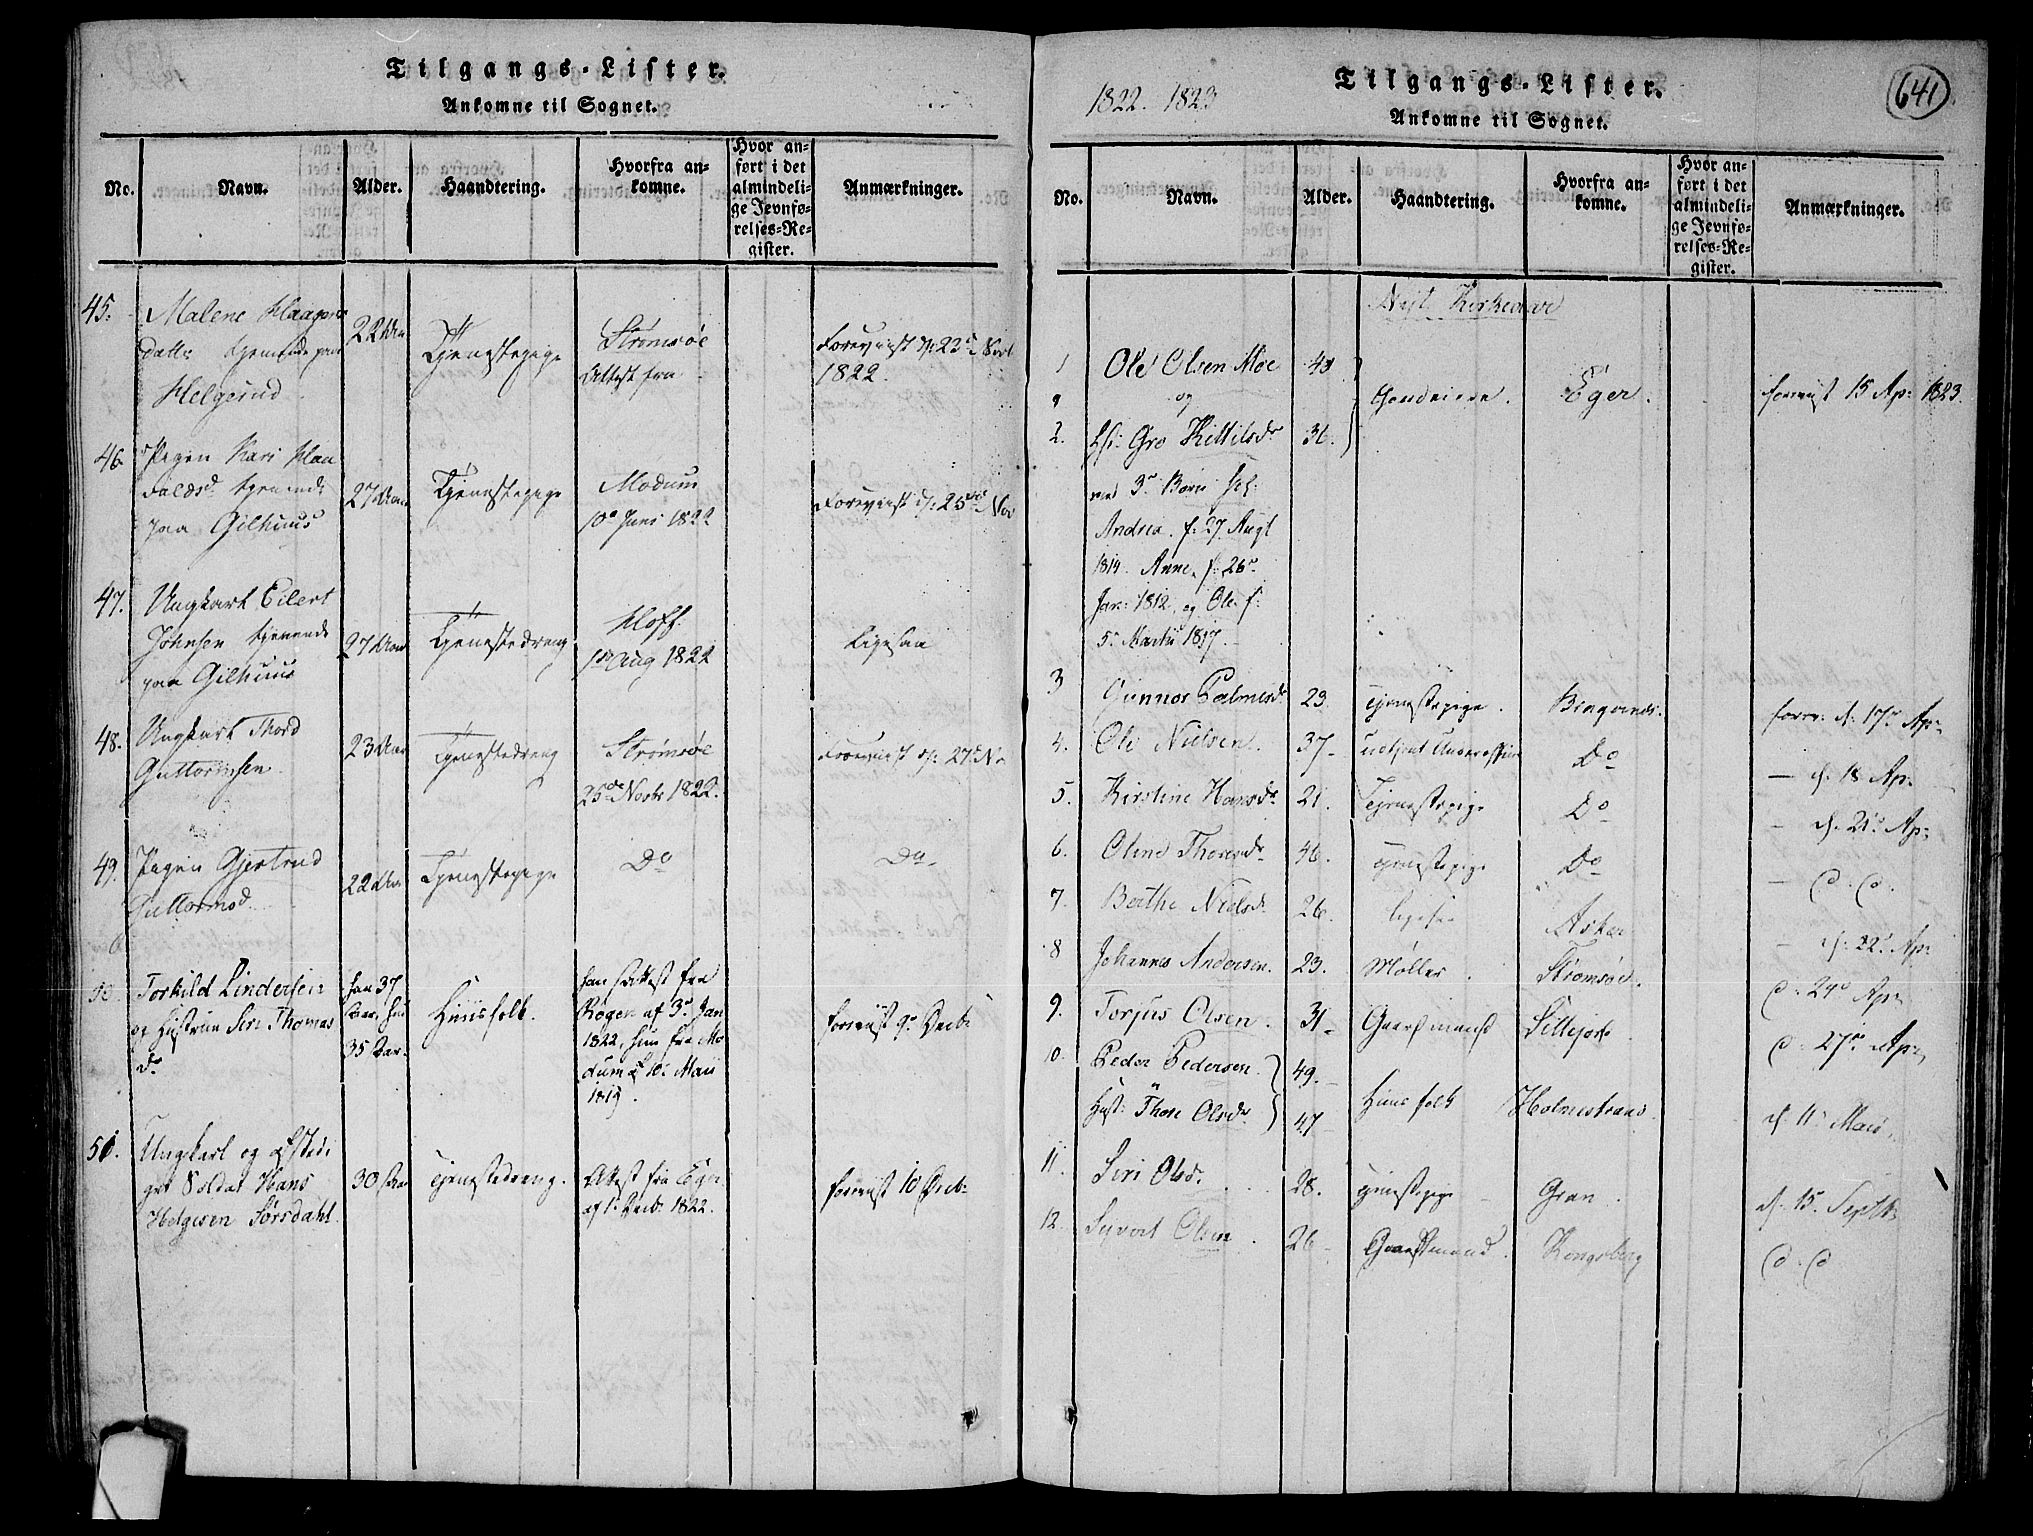 Tilgangs-Lister.
Ankomne til Sognet.
No. Navn. Alder. Haandtering. Hvorfra ankomne. Hvor anført i det almindelige Jevnførelses-Register. Anmærkninger.
45. Malene 22 Aar Tjenestepige Strømsøe Foreviist d: 23 Novb
datter tjenende paa Attest fra 1822.
Helgerud
46. Pigen Kari 27 Aar Tjenestepige Modum Foreviist d: 25de Nov
tjenende 10de Juni 1822
paa Gilhuus
47. Ungkarl Eilert 27 Aar Tjenestedreng Hoff Ligesaa
Johnsen tjenende Aug 1822
paa Gilhuus
48. Ungkarl Thord 23 Aar Tjenestedreng Strømsøe Foreviist d: 27 No
Guttormsen 25de Novbr 1822.
49. Pigen Gjertrud 22 Aar Tjenestepige Do Do
Guttormsd
50. Torkild Lindersen han 37 Huusfolk. han Attest fra foreviist 9de Decb:
og Hustrue Siri Thomas Aar, hun Rogen af 3de Jan
dr 35 Aar. 1822, hun fra Mo
dum 10 Mai
1819.
51. Ungkarl og afskedi 30 Aar Tjenestedreng. Attest fra Eger foreviist 10 Decb:
get Soldat Hans af 1 Decb: 1822.
Helgesen Sørsdahl.
1822. 1823
Tilgangs-Lister.
641
Ankomne til Sognet.
No. Navn. Alder. Haandtering. Hvorfra ankomne. Hvor anført i det almindelige Jevnførelses-Register. Anmærkninger.
Nyt Kirkeaar
1 Ole Olsen Moe
og Eger. foreviist 15 Ap: 1823.
2. Gro Kittilsdr 36.
med 3de Børn
Andrea. f: 27 Augt
1814. Anne, f: 26de
Jan: 1812, og Ole f:
5te Martii 1817.
3 Gunnor Palmesdr 23. Tjenestepige. Bragernes. forev: d: 17de Ap:
4. Ole Nielsen. 37 Do — d. 18 Ap:
5. Kirstine Hansdr 21. Tjenestepige Do — d. 21 Ap:
6. Oline Thoresdr 46. Tjenestepige Do — d. d.
7. Berthe Nielsdr 26. ligesaa Asker — d. 22 Ap:
8 Johannes Andersen. 23. Møller. Strømsøe. d. 24de Ap:
9. Torjus Olsen. 31 Gaardmand Sillejord d. 27de Ap:
10. Peder Pedersen. 49. Huusfolk Holmestrand d. 11 Mai.
Hust: Thore Olsdr 47
11. Siri Olsd. 28. Tjenestepige Gran. d. 15. Septb:
12. Syvert Olsen. 26 Gaardmand. Kongsberg d. d